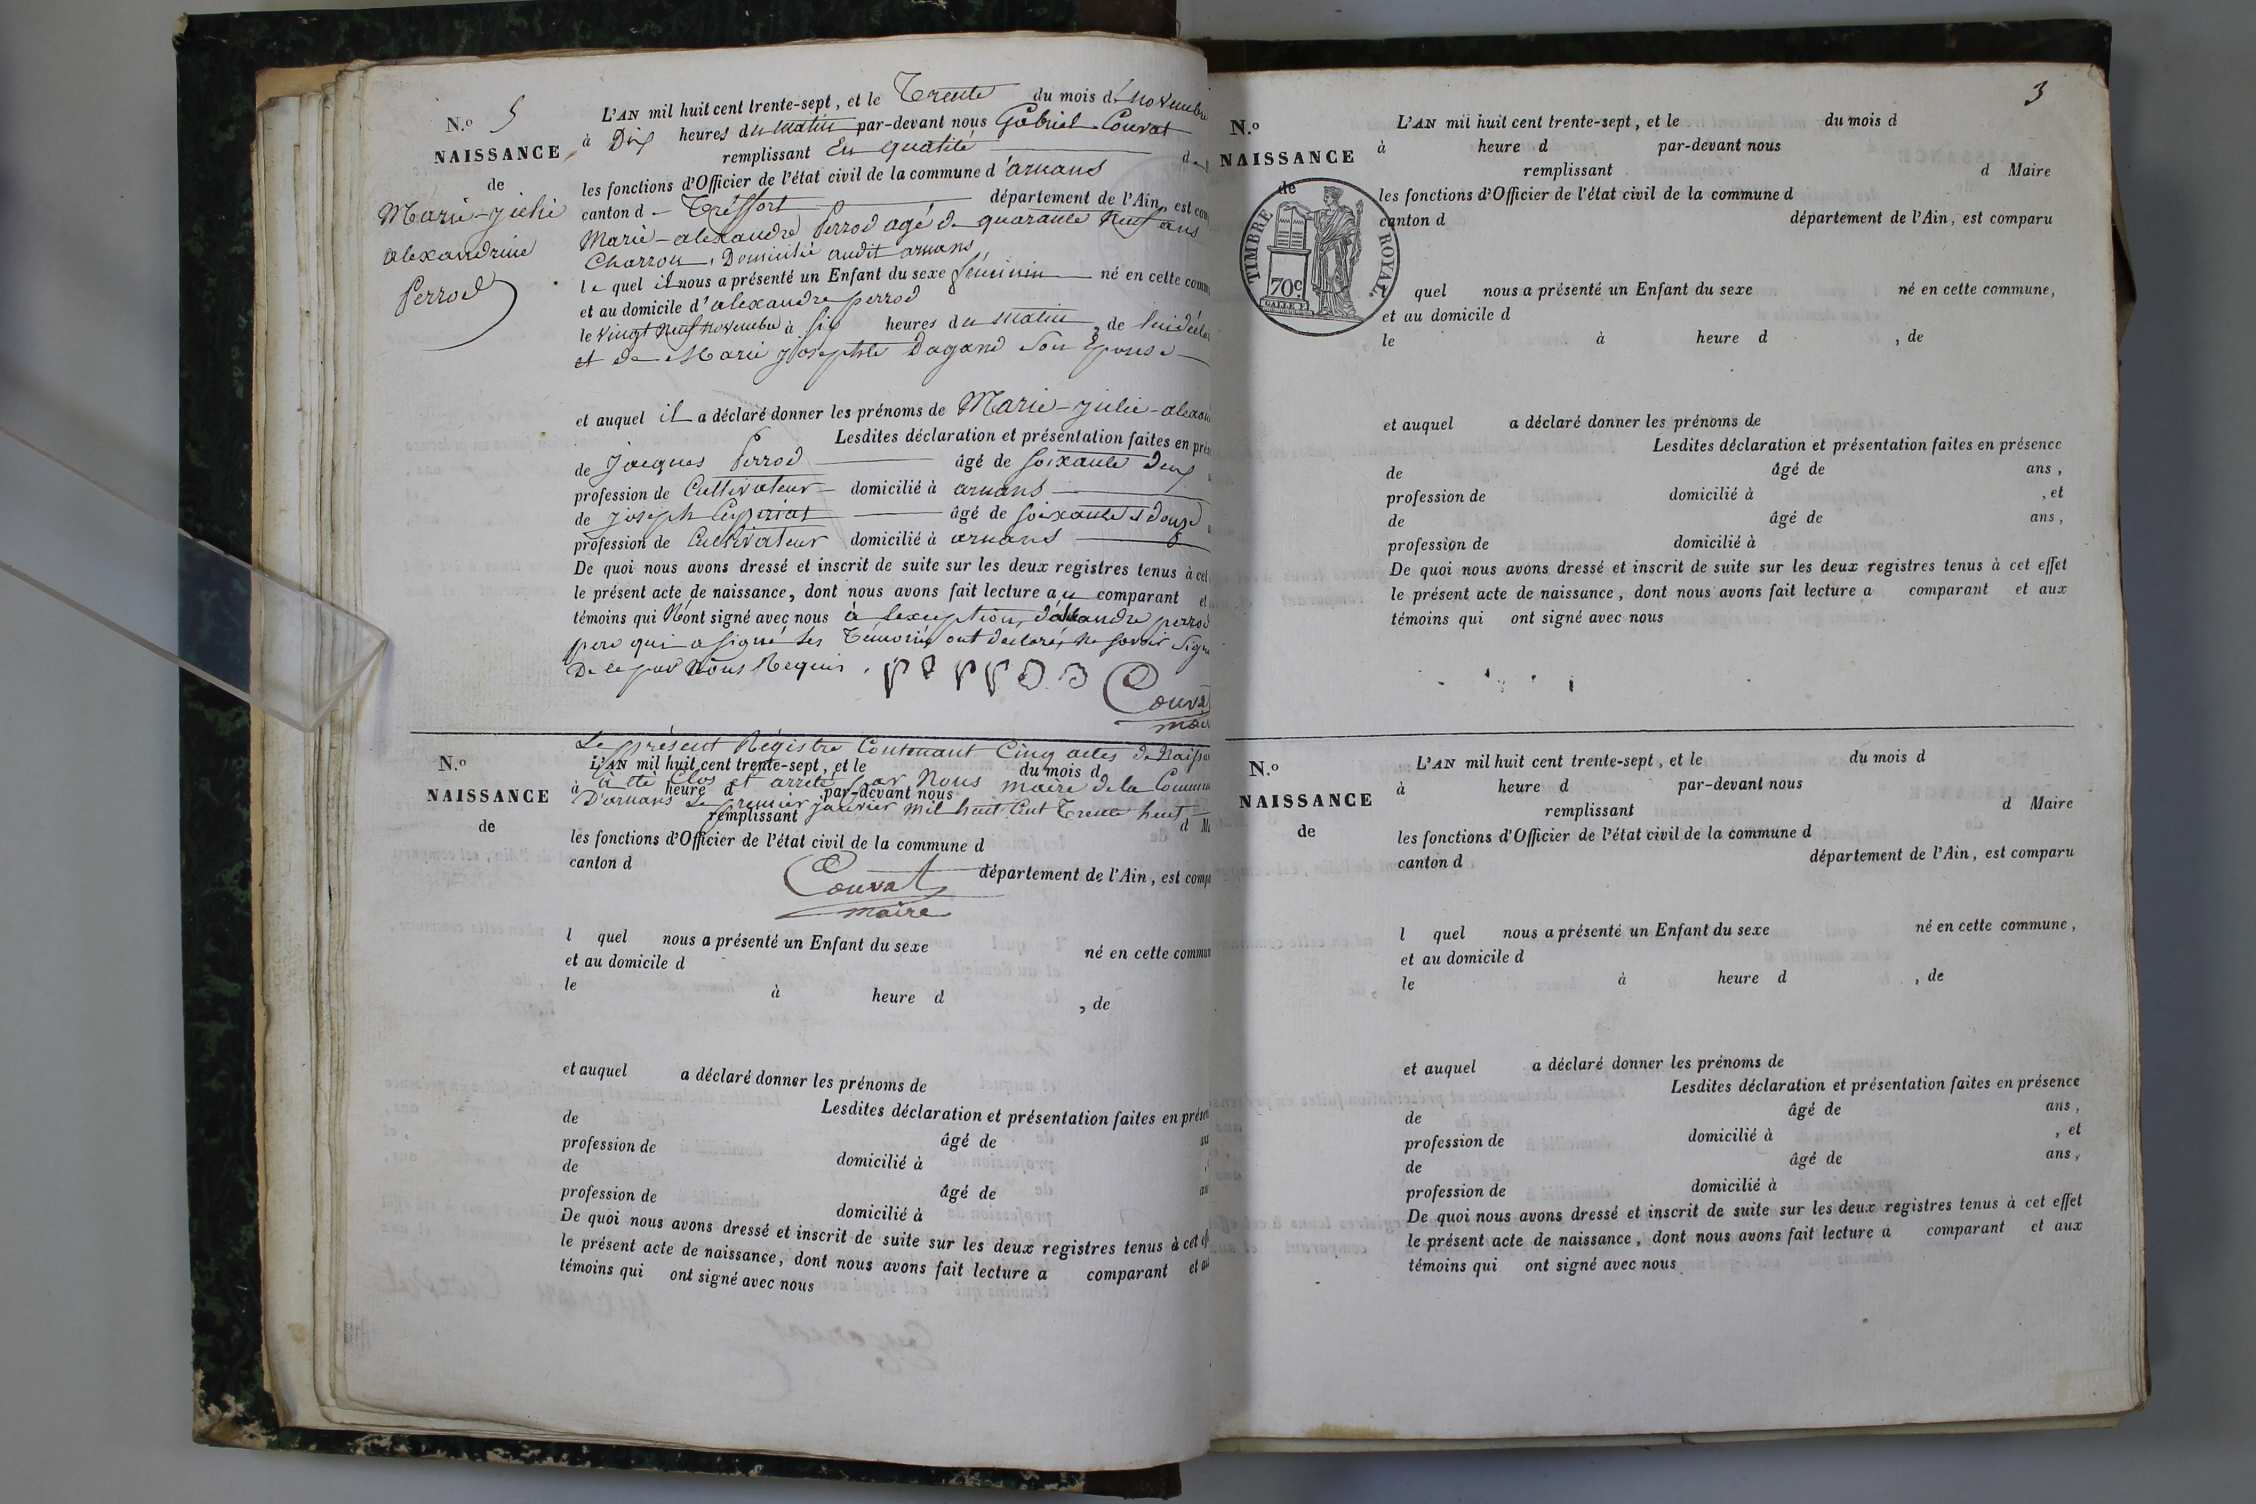 N.o 5
NAISSANCE
de
Marie-Julie
alexandrine
Perrod
L'AN mil huit cent trente-sept, et le Trente du mois de novembre
à Dix heures du matin par-devant nous Gabriel Couvat
remplissant En qualité d
les fonctions d'Officier de l'état civil de la commune d'arnans
canton de Tréffort département de l'Ain, est com
Marie-alexandre Perrod agé de quarante neuf ans
Charron, Domicilié audit arnans
le quel il nous a présenté un Enfant du sexe féminin né en cette comm
et au domicile d'alexandre perrod
le vingt neuf novembre à six heures du matin, de lui décla
et de Marie Josephte Dagand Son Epouse
et auquel il a déclaré donner les prénoms de Marie-Julie-alexan
Lesdites déclaration et présentation faites en prés
de Jacques Perrod âgé de soixante deux
profession de Cultivateur domicilié à arnans
de Joseph âgé de soixante et douze
profession de Cultivateur domicilié à arnans
De quoi nous avons dressé et inscrit de suite sur les deux registres tenus à cet
le présent acte de naissance, dont nous avons fait lecture au comparant et
témoins qui N'ont signé avec nous à l'exception d'alexandre perrod
pere qui a signé les Témoins ont declaré ne savoir signe
De ce par Nous Requis.
Couvat
maire
Le présent Régistre Contenant Cinq actes de Naissa
à été Clos et arrété par Nous maire de la Commune
D'arnans Le premier Janvier mil huit Cent Trente huit
Couvat
maire
N.o
NAISSANCE
de
L'AN mil huit cent trente-sept, et le du mois d
à heure d par-devant nous
remplissant d M
les fonctions d'Officier de l'état civil de la commune d
canton d département de l'Ain, est comp
l quel nous a présenté un Enfant du sexe né en cette commun
et au domicile d
le à heure d , de
et auquel a déclaré donner les prénoms de
Lesdites déclaration et présentation faites en prése
de âgé de an
profession de domicilié à
de âgé de an
profession de domicilié à
De quoi nous avons dressé et inscrit de suite sur les deux registres tenus à cet ef
le présent acte de naissance, dont nous avons fait lecture a comparant et au
témoins qui ont signé avec nous
3
N.o
NAISSANCE
de
TIMBRE ROYAL
70c
L'AN mil huit cent trente-sept, et le du mois d
à heure d par-devant nous
remplissant d Maire
les fonctions d'Officier de l'état civil de la commune d
canton d département de l'Ain, est comparu
l quel nous a présenté un Enfant du sexe né en cette commune,
et au domicile d
le à heure d , de
et auquel a déclaré donner les prénoms de
Lesdites déclaration et présentation faites en présence
de âgé de ans,
profession de domicilié à , et
de âgé de ans,
profession de domicilié à
De quoi nous avons dressé et inscrit de suite sur les deux registres tenus à cet effet
le présent acte de naissance, dont nous avons fait lecture a comparant et aux
témoins qui ont signé avec nous
N.o
NAISSANCE
de
L'AN mil huit cent trente-sept, et le du mois d
à heure d par-devant nous
remplissant d Maire
les fonctions d'Officier de l'état civil de la commune d
canton d département de l'Ain, est comparu
l quel nous a présenté un Enfant du sexe né en cette commune,
et au domicile d
le à heure d , de
et auquel a déclaré donner les prénoms de
Lesdites déclaration et présentation faites en présence
de âgé de ans,
profession de domicilié à , et
de âgé de ans,
profession de domicilié à
De quoi nous avons dressé et inscrit de suite sur les deux registres tenus à cet effet
le présent acte de naissance, dont nous avons fait lecture a comparant et aux
témoins qui ont signé avec nous